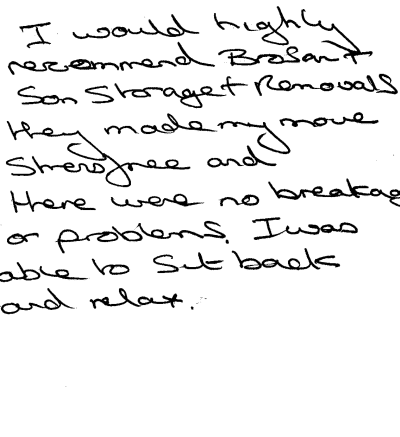 I would highly
recommend Brosan +
Son Storage + Removals
they made my move
Stress free and
there were no breakag
or problems. I was
able to Sit back
and relax.